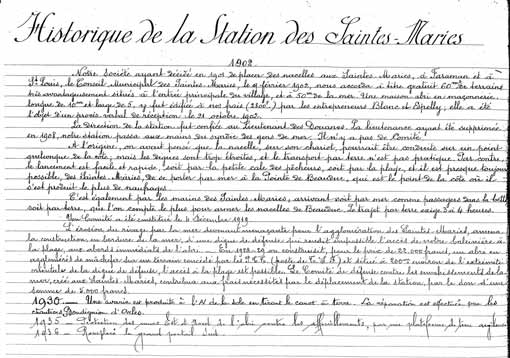 Historique de la Station des Saintes-Maries
1902.
Notre Société ayant décidé en 1901 de placer des nacelles aux Saintes-Maries, à Faraman et à
St Louis, le Conseil Municipal des Saintes-Maries, le 9 février 1902, nous accorda à titre gratuit 60 m2 de terrains
très avantageusement situés à l'entrée principale du village, et à 50m de la mer. Une maison abri en maçonnerie,
longue de 10m et large de 5, y fut édifiée à nos frais par les entrepreneurs Blanc et ; elle a été
l'objet d'un procès verbal de réception le 21 octobre 1902.
La direction de la station fut confiée au Lieutenant des Douanes. La lieutenance ayant été supprimée
en 1908, notre station passa aux mains du syndic des gens de mer. Il n'y a pas de Comité.
A l'origine, on avait pensé que la nacelle, sur son chariot, pourrait être conduite sur un point
quelconque de la côte; mais les digues sont trop étroites, et le transport par terre n'est pas pratique. Par contre,
le lancement est facile et rapide, soit par la petite cale des pêcheurs, soit par la plage, et il est presque toujours
possible, des Saintes-Maries, de se porter par mer à la Pointe de Beauduc, qui est le point de la côte où il
s'est produit le plus de naufrages.
C'est également par les marins des Saintes-Maries, arrivant soit par mer comme passagers dans la
soit par terre, que l'on compte le plus pour armer la nacelle de Beauduc. Le trajet par terre exige 3 à 4 heures.
Un Comité a été constitué le 4 décembre
L'érosion du rivage par la mer devenant menaçante pour l'agglomération des Saintes-Maries, amena
la construction, en bordure de la mer, d'une digue de défense qui rendit impossible l'accès de notre baleinière à
la plage, aux abords immédiats de l'abri. En 1928-29 on construisit, pour le prix de 22.000 francs, un abri en
agglomérés de mâchefer sur un terrain concédé par les et situé à 200m environ de l'extrémité
orientale de la digue de défense, l'accès à la plage est possible. Le Comité de défense contre les envahissements de la
mer, créé aux Saintes-Maries, contribua aux frais nécessités par le déplacement de la station, par le don d'une
somme de 5.000 francs.
1930 — Une avarie est produite à l'N de le en tirant le canot à terre. La réparation est effectuée par les
chantiers d'Arles.
1935 — Protection des murs Est et Ouest de l'abri contre les affouillements, par une plateforme de
1936 — Remplacé le grand portail Sud.